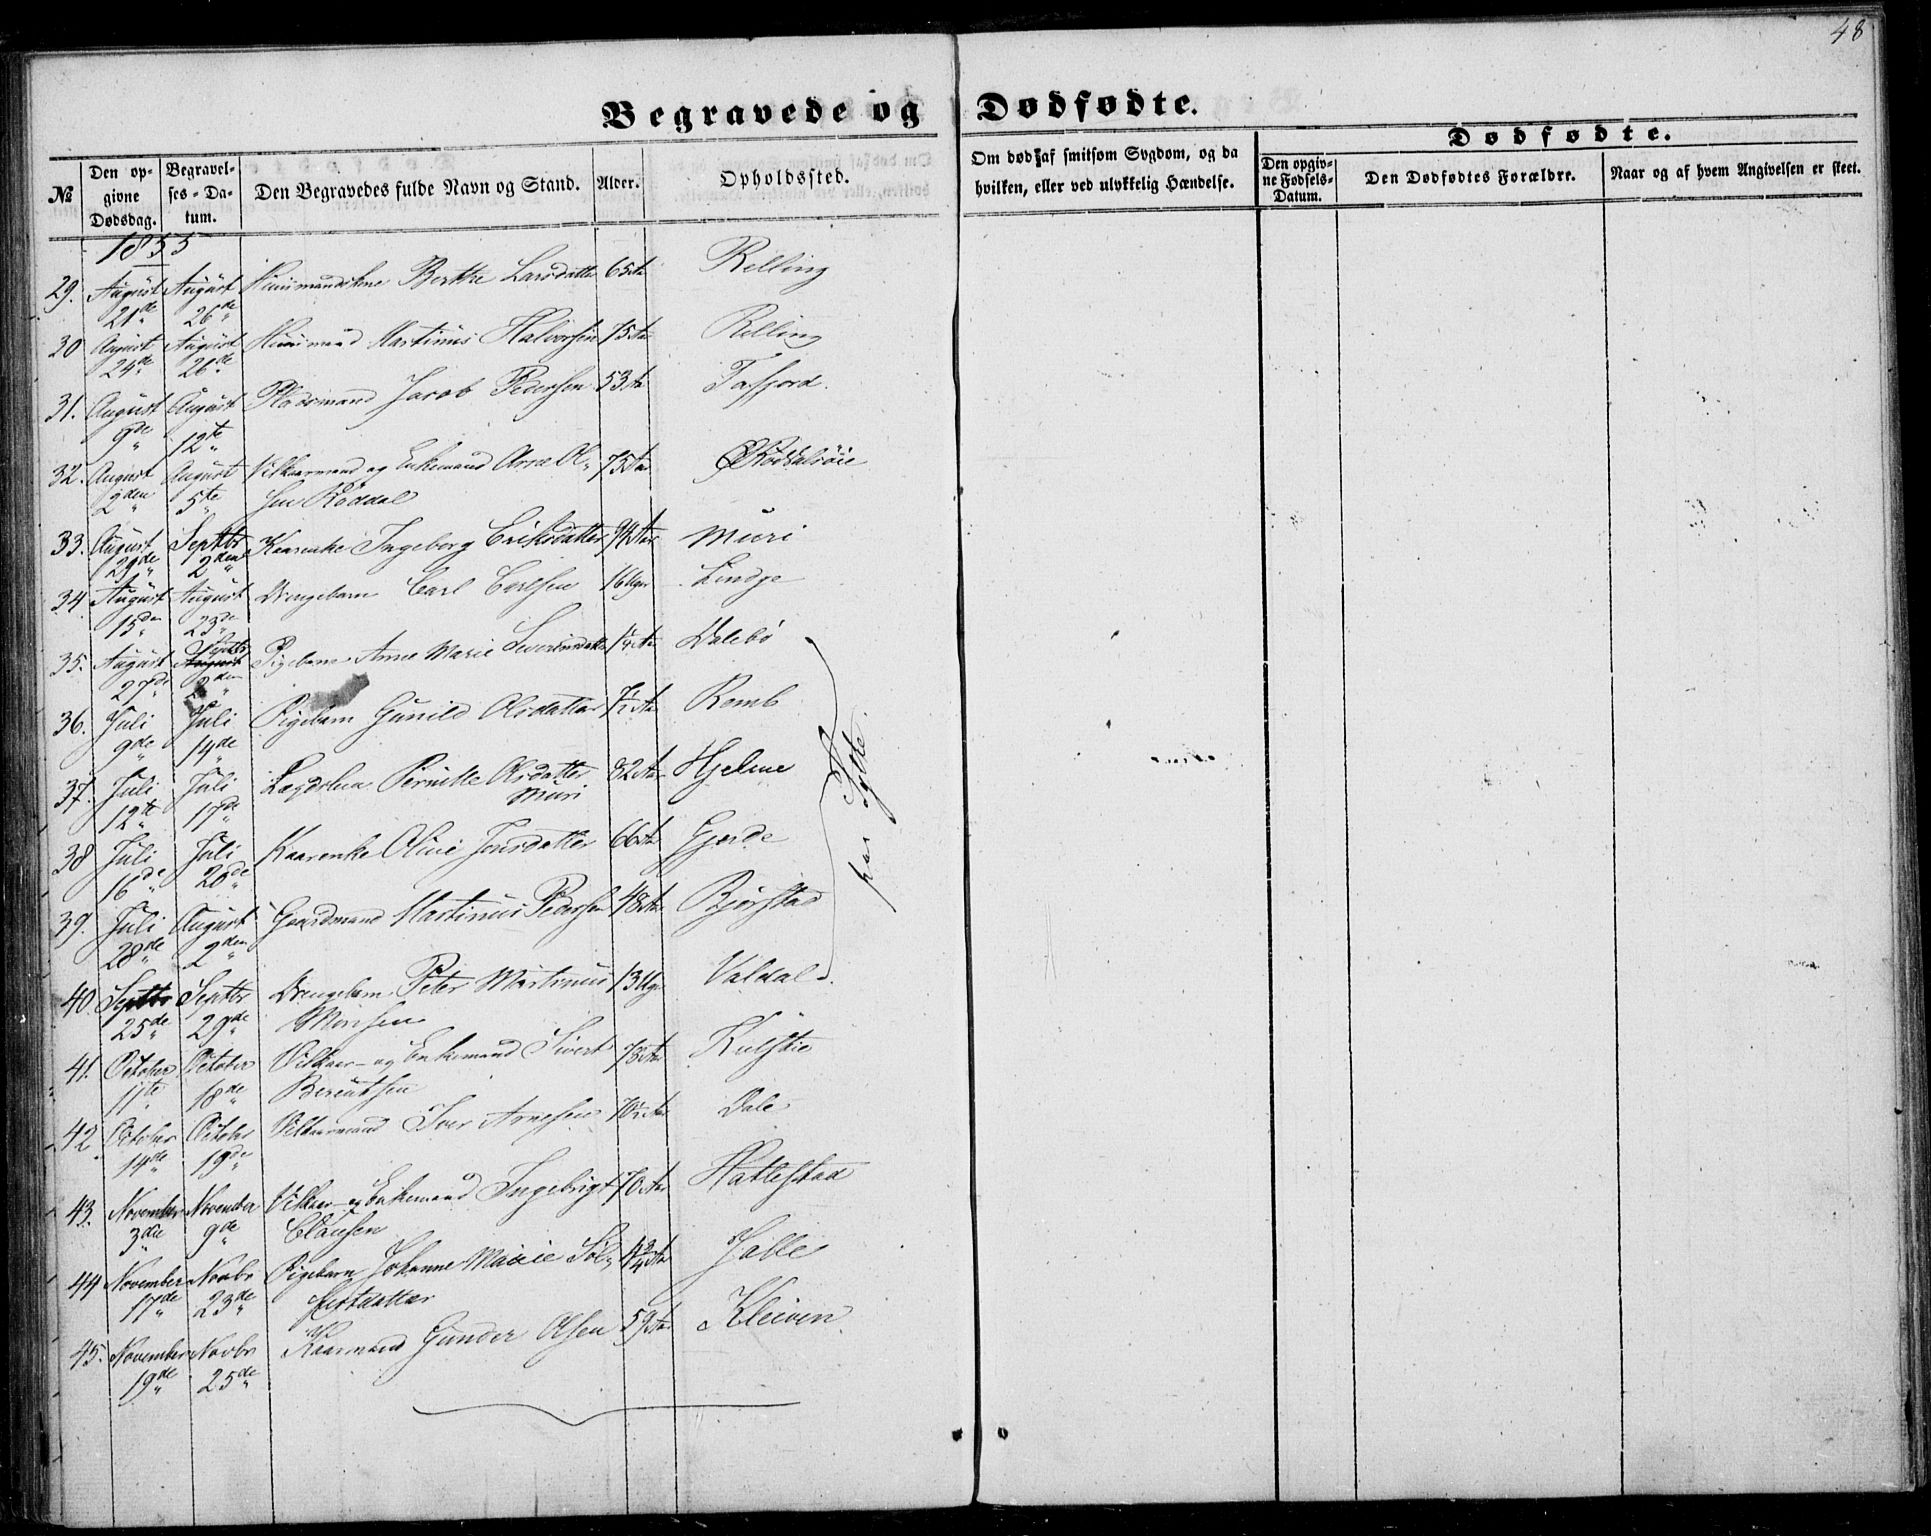 48
Begravede og Dødfødte.
№ Den opgivne Dødsdag. Begravelses-Datum. Den Begravedes fulde Navn og Stand. Alder. Opholdssted. Om død af smitsom Sygdom, og da hvilken, eller ved ulykkelig Hændelse. Dødfødte. Den opgivne Fødsels-Datum. Den Dødfødtes Forældre. Naar og af hvem Angivelsen er skeet.
1855
29. August August Huusmandskone Berthe Larsdatter 65 Aar Relling
21de 26de
30 August August Huusmand Martinus Halvorsen 75 Aar Relling
24de 26de
31. August August Pladsmand Jacob Pedersen 53 Aar Tafjord.
9de 12te
32. August August Vilkaarmand og Enkemand Arne Ol- 75 Aar Röddalsöie
2den 5te sen Röddal
33. August Septbr Kaarenke Ingeborg Eriksdatter 94 Aar Muri
29de 2den
34 August August Drengebarn Carl Carlsen 16 Uger Linge
15de 23de
35. August Septbr Pigebarn Anne Marie Severinsdatter 1/4 Aar Dalebö
27de 2den
36. Juli Juli Pigebarn Gunild Olsdatter 7 1/2 Aar Remb
9de 14de
37. Juli Juli Lægdslem Pernille Olsdatter 82 Aar Hjelme
12te 17de Muri
38 Juli Juli Kaarenke Oline Jonsdatter 66 Aar Gjerde
16de 20de
39. Juli August Gaardmand Martinus Pedersen 48 Aar Bjørstad
28de 2den
paa Sylte.
40. Septbr Septbr Drengebarn Peter Martinus 13 Uger Valdal
25de 29de Monsen
41. October October Vilkaar- og Enkemand Sivert 73 Aar
11te 18de Berentsen
42. October Octobr Vilkaarmand Iver Arnesen 70 1/2 Aar Dale
14de 19de
43. November November Vilkaar- og Enkemand Ingebrigt 70 Aar Hatlestad
3die 9de Clausen
44 November Novbr Pigebarn Johanne Marie Syl- Aar
17de 23de festdatter
45. November Novbr Kaarmand Gunder Olsen 59 Aar Kleiven
19de 25de